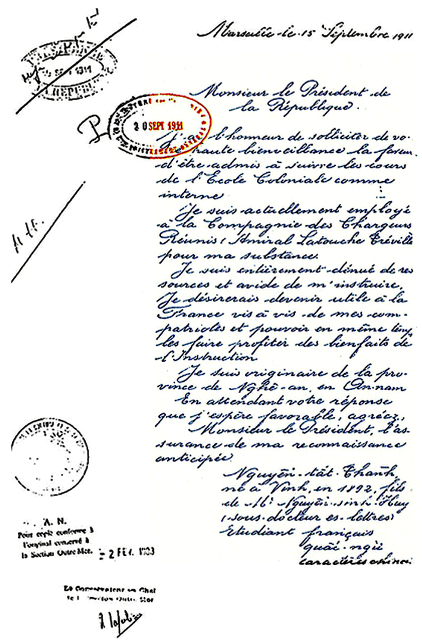 Marseille le 15 Septembre 1911
Monsieur le Président de
la République.
20 SEPT 1911
l'honneur de solliciter de vo-
haute bienveillance la faveur
d'être admis à suivre les cours
de l'Ecole Coloniale comme
interne
Je suis actuellement employé
à la Compagnie des Chargeurs
Réunis, Amiral Latouche Tréville
pour ma substance
Je suis entièrement dénué de res
sources et avide de m'instruire.
Je désirerais devenir utile à la
France vis à vis de mes com-
patriotes et pouvoir en même temps
les faire profiter des bienfaits de
l'Instruction
Je suis originaire de la pro-
vince de Nghê-an, en Annam
En attendant votre réponse
que j'espère favorable, agréez,
Monsieur le Président, l'as-
surance de ma reconnaissance
anticipée
Nguyên tât Thanh,
né à Vinh, en 1892, fils
de Mr Nguyên sinh Huy
sous docteur es lettres
Etudiant français
quôc ngữ
caractères chinois
A. N.
Pour copie conforme à
l'original conservé à
la Section Outre-Mer.
- 2 FEV. 1983
Le Conservateur en Chef
Section Outre Mer